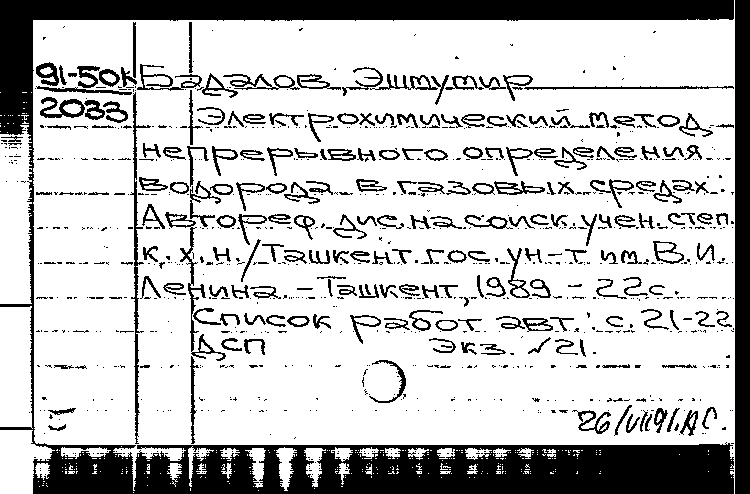 91-50к Бадалов, Эштутир
2033 Электрохимический метод
непрерывного определения
водорода в газовых средах:
Автореф. дис. на соиск. учен. степ.
к.х.н. / Ташкент. гос. ун-т им. В.И.
Ленина. - Ташкент, 1989 - 22с.
Список работ авт.: с. 21-22
ДСП Экз. №21.
26/VII91. АС.